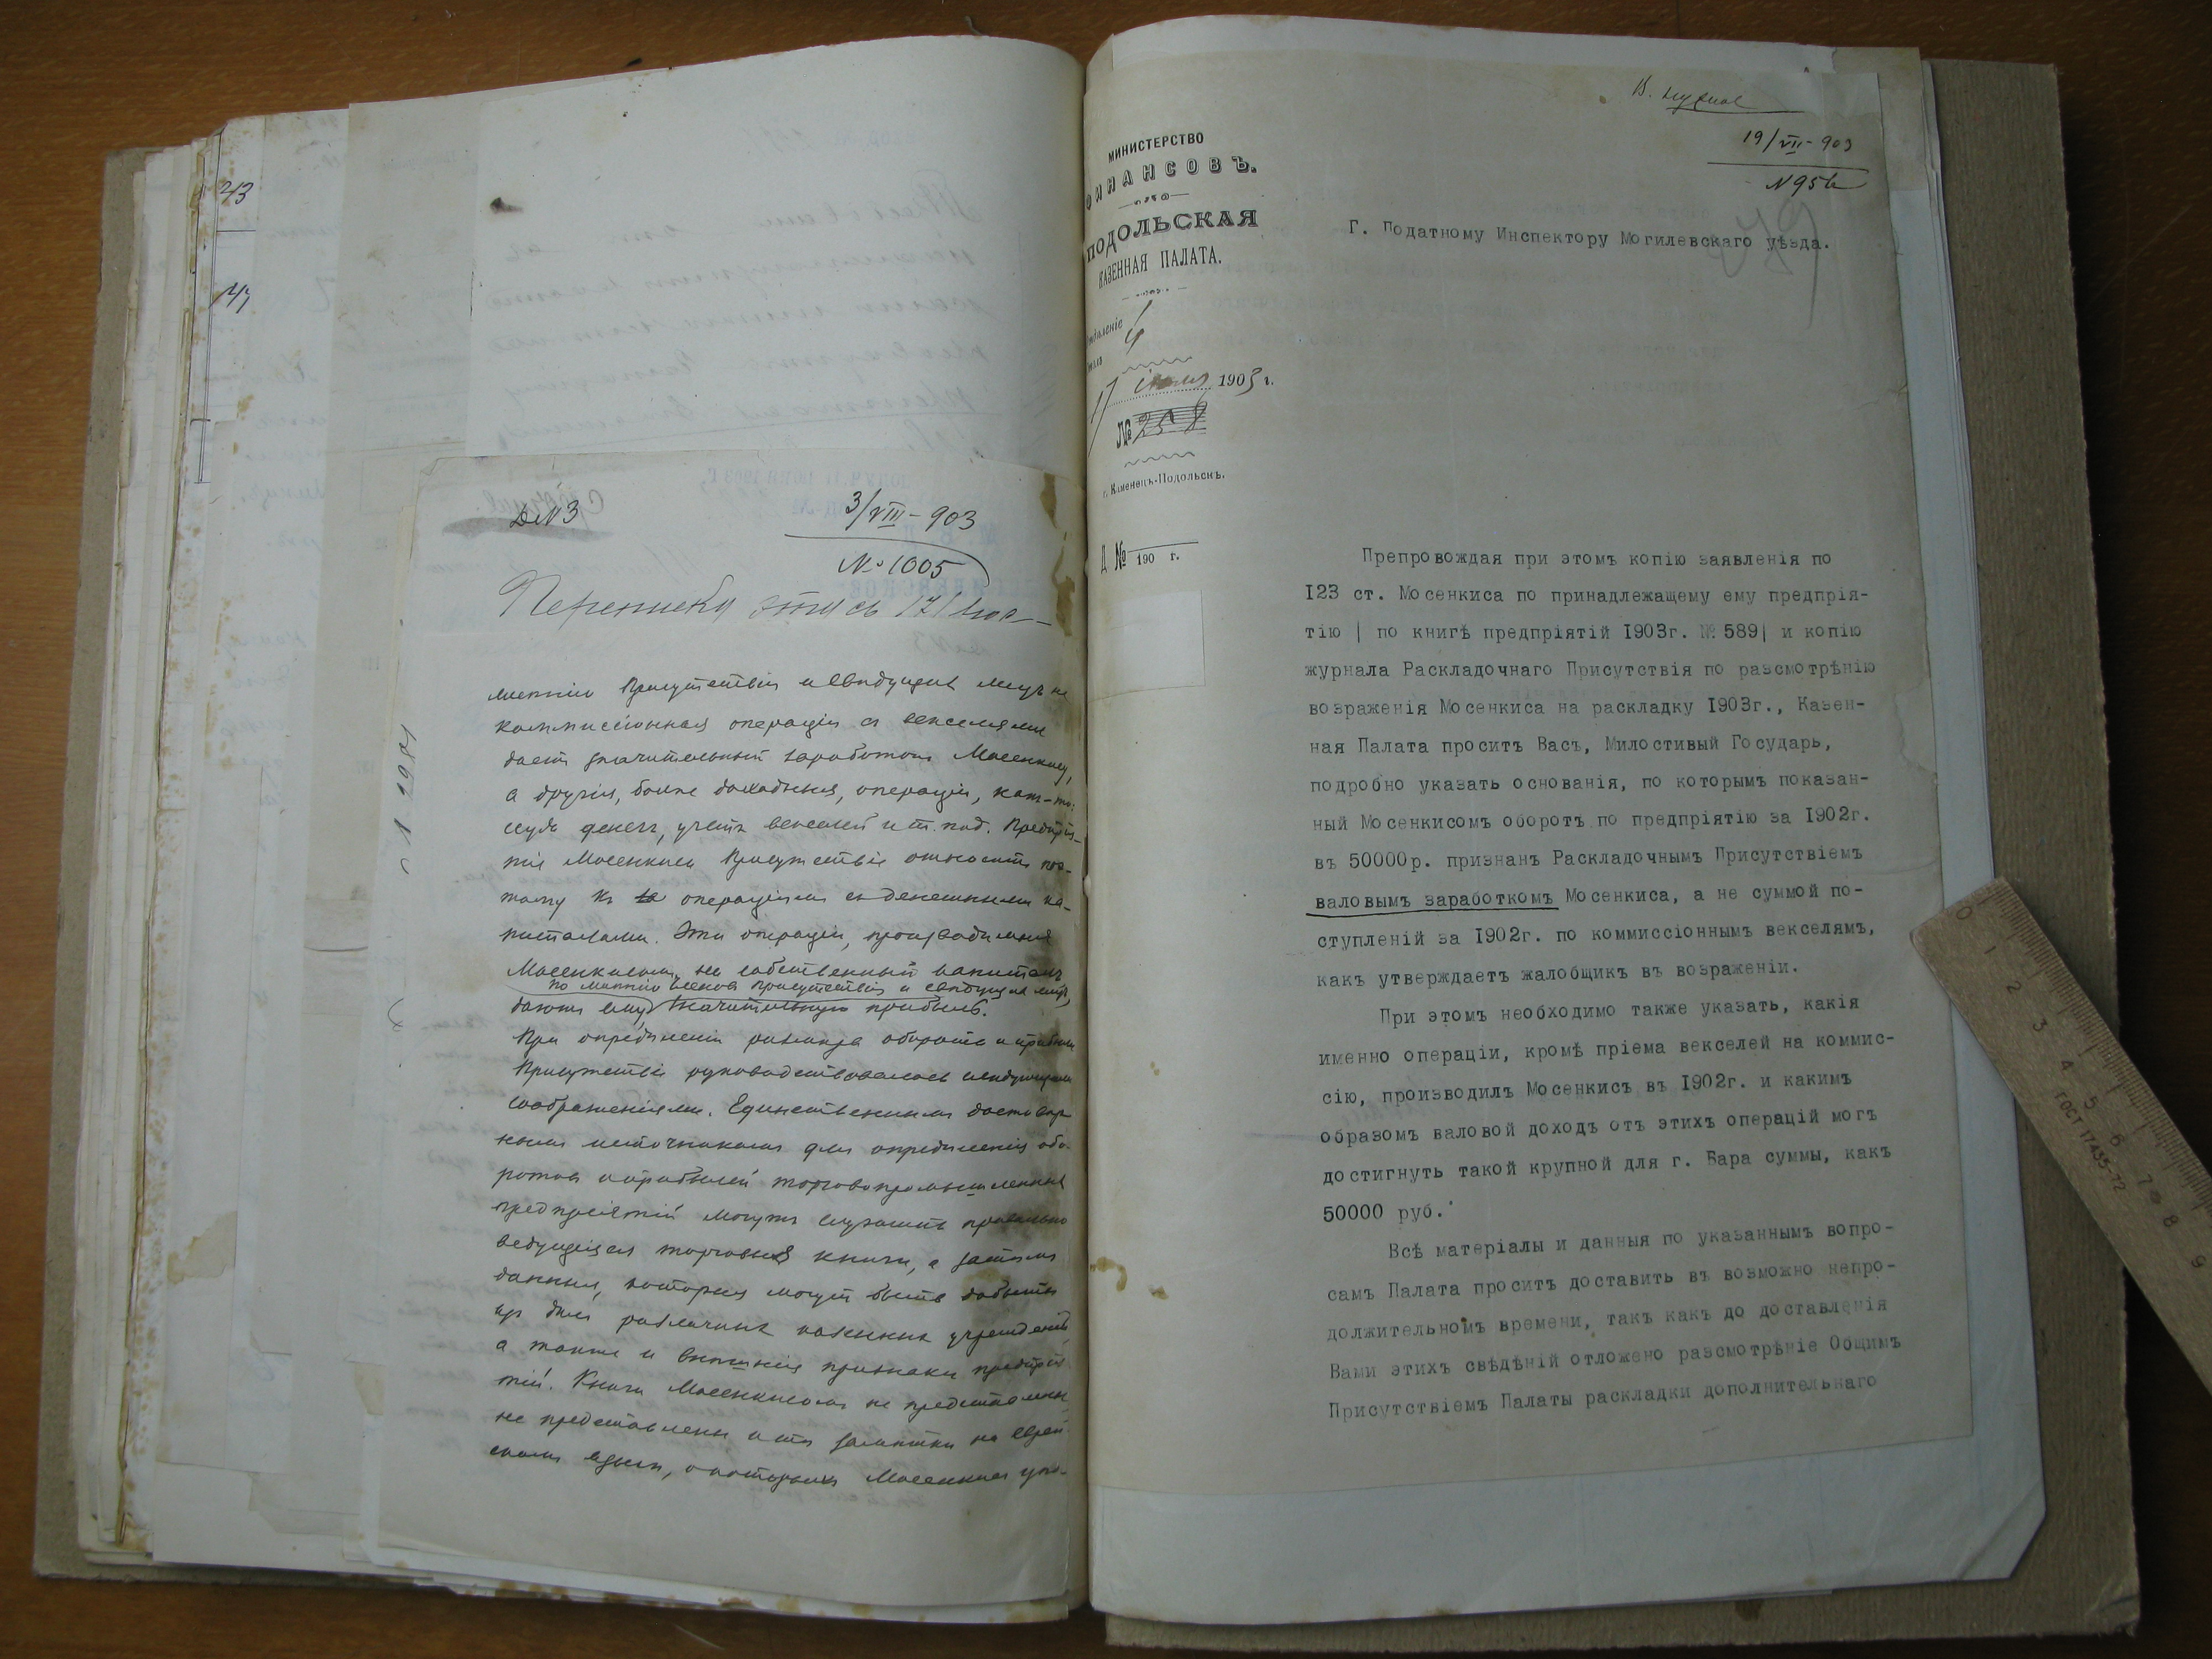 43
Д№3
3/VIII – 903
№ 1005
мнѣнію Присутствія и свѣдущихъ лицъ не
коммиссіонная операція съ векселями
даетъ значительный заработокъ Мосенкису,
а другія, болѣе доходныя, операціи, какъ-то:
ссуда денегъ, учетъ векселей и т. под. Предпрія-
тіе Мосенкиса Присутствіе относитъ по-
тому къ операціямъ съ денежными ка-
питалами. Эти операціи, производимыя
Мосенкисомъ на собственный капиталъ
по мнѣнію членовъ Присутствія и свѣдущихъ лицъ,
даютъ ему значительную прибыль.
При опредѣленіи размѣра оборота и прибыли
Присутствіе руководствовалось слѣдующими
соображеніями. Единственнымъ достовѣр-
нымъ источникомъ для опредѣленія обо-
ротовъ и прибылей торговопромышленныхъ
предпріятій могутъ служить правильно
ведущіяся торговыя книги, а затѣмъ
данныя, которыя могутъ быть добыты
изъ дѣлъ различныхъ казенныхъ учрежденій
а также и внѣшнія признаки предпрія-
тій. Книги Мосенкисомъ не представлены
не представлены и тѣ замѣтки на еврей-
скомъ языкѣ, о которыхъ Мосенкисъ упо-
19/VII – 903
МИНИСТЕРСТВО
ФИНАНСОВЪ.
ПОДОЛЬСКАЯ
КАЗЕННАЯ ПАЛАТА.
17 іюля 1903 г.
№
г. Каменецъ-Подольскъ.
Д. № 190 г.
Г. Податному Инспектору Могилевскаго уѣзда.
Препровождая при этомъ копію заявленія по
123 ст. Мосенкиса по принадлежащему ему предпрія-
тію | по книгѣ предпріятій 1903г. № 589| и копію
журнала Раскладочнаго Присутствія по разсмотрѣнію
возраженія Мосенкиса на раскладку 1903г., Казен-
ная Палата проситъ Васъ, Милостивый Государь,
подробно указать основанія, по которымъ показан-
ный Мосенкисомъ оборотъ по предпріятію за 1902г.
въ 50000р. признанъ Раскладочнымъ Присутствіемъ
валовымъ заработкомъ Мосенкиса, а не суммой по-
ступленій за 1902г. по коммиссіоннымъ векселямъ,
какъ утверждаетъ жалобщикъ въ возраженіи.
При этомъ необходимо также указать, какія
именно операціи, кромѣ пріема векселей на коммис-
сію, производилъ Мосенкисъ въ 1902г. и какимъ
образомъ валовой доходъ отъ этихъ операцій могъ
достигнуть такой крупной для г. Бара суммы, какъ
50000 руб.
Всѣ матеріалы и данныя по указаннымъ вопро-
самъ Палата проситъ доставить въ возможно непро-
должительномъ времени, такъ какъ до доставленія
Вами этихъ свѣдѣній отложено разсмотрѣніе Общимъ
Присутствіемъ Палаты раскладки дополнительнаго
0 1 2 3 4 5 6 7 8 9
ГОСТ 17435-72